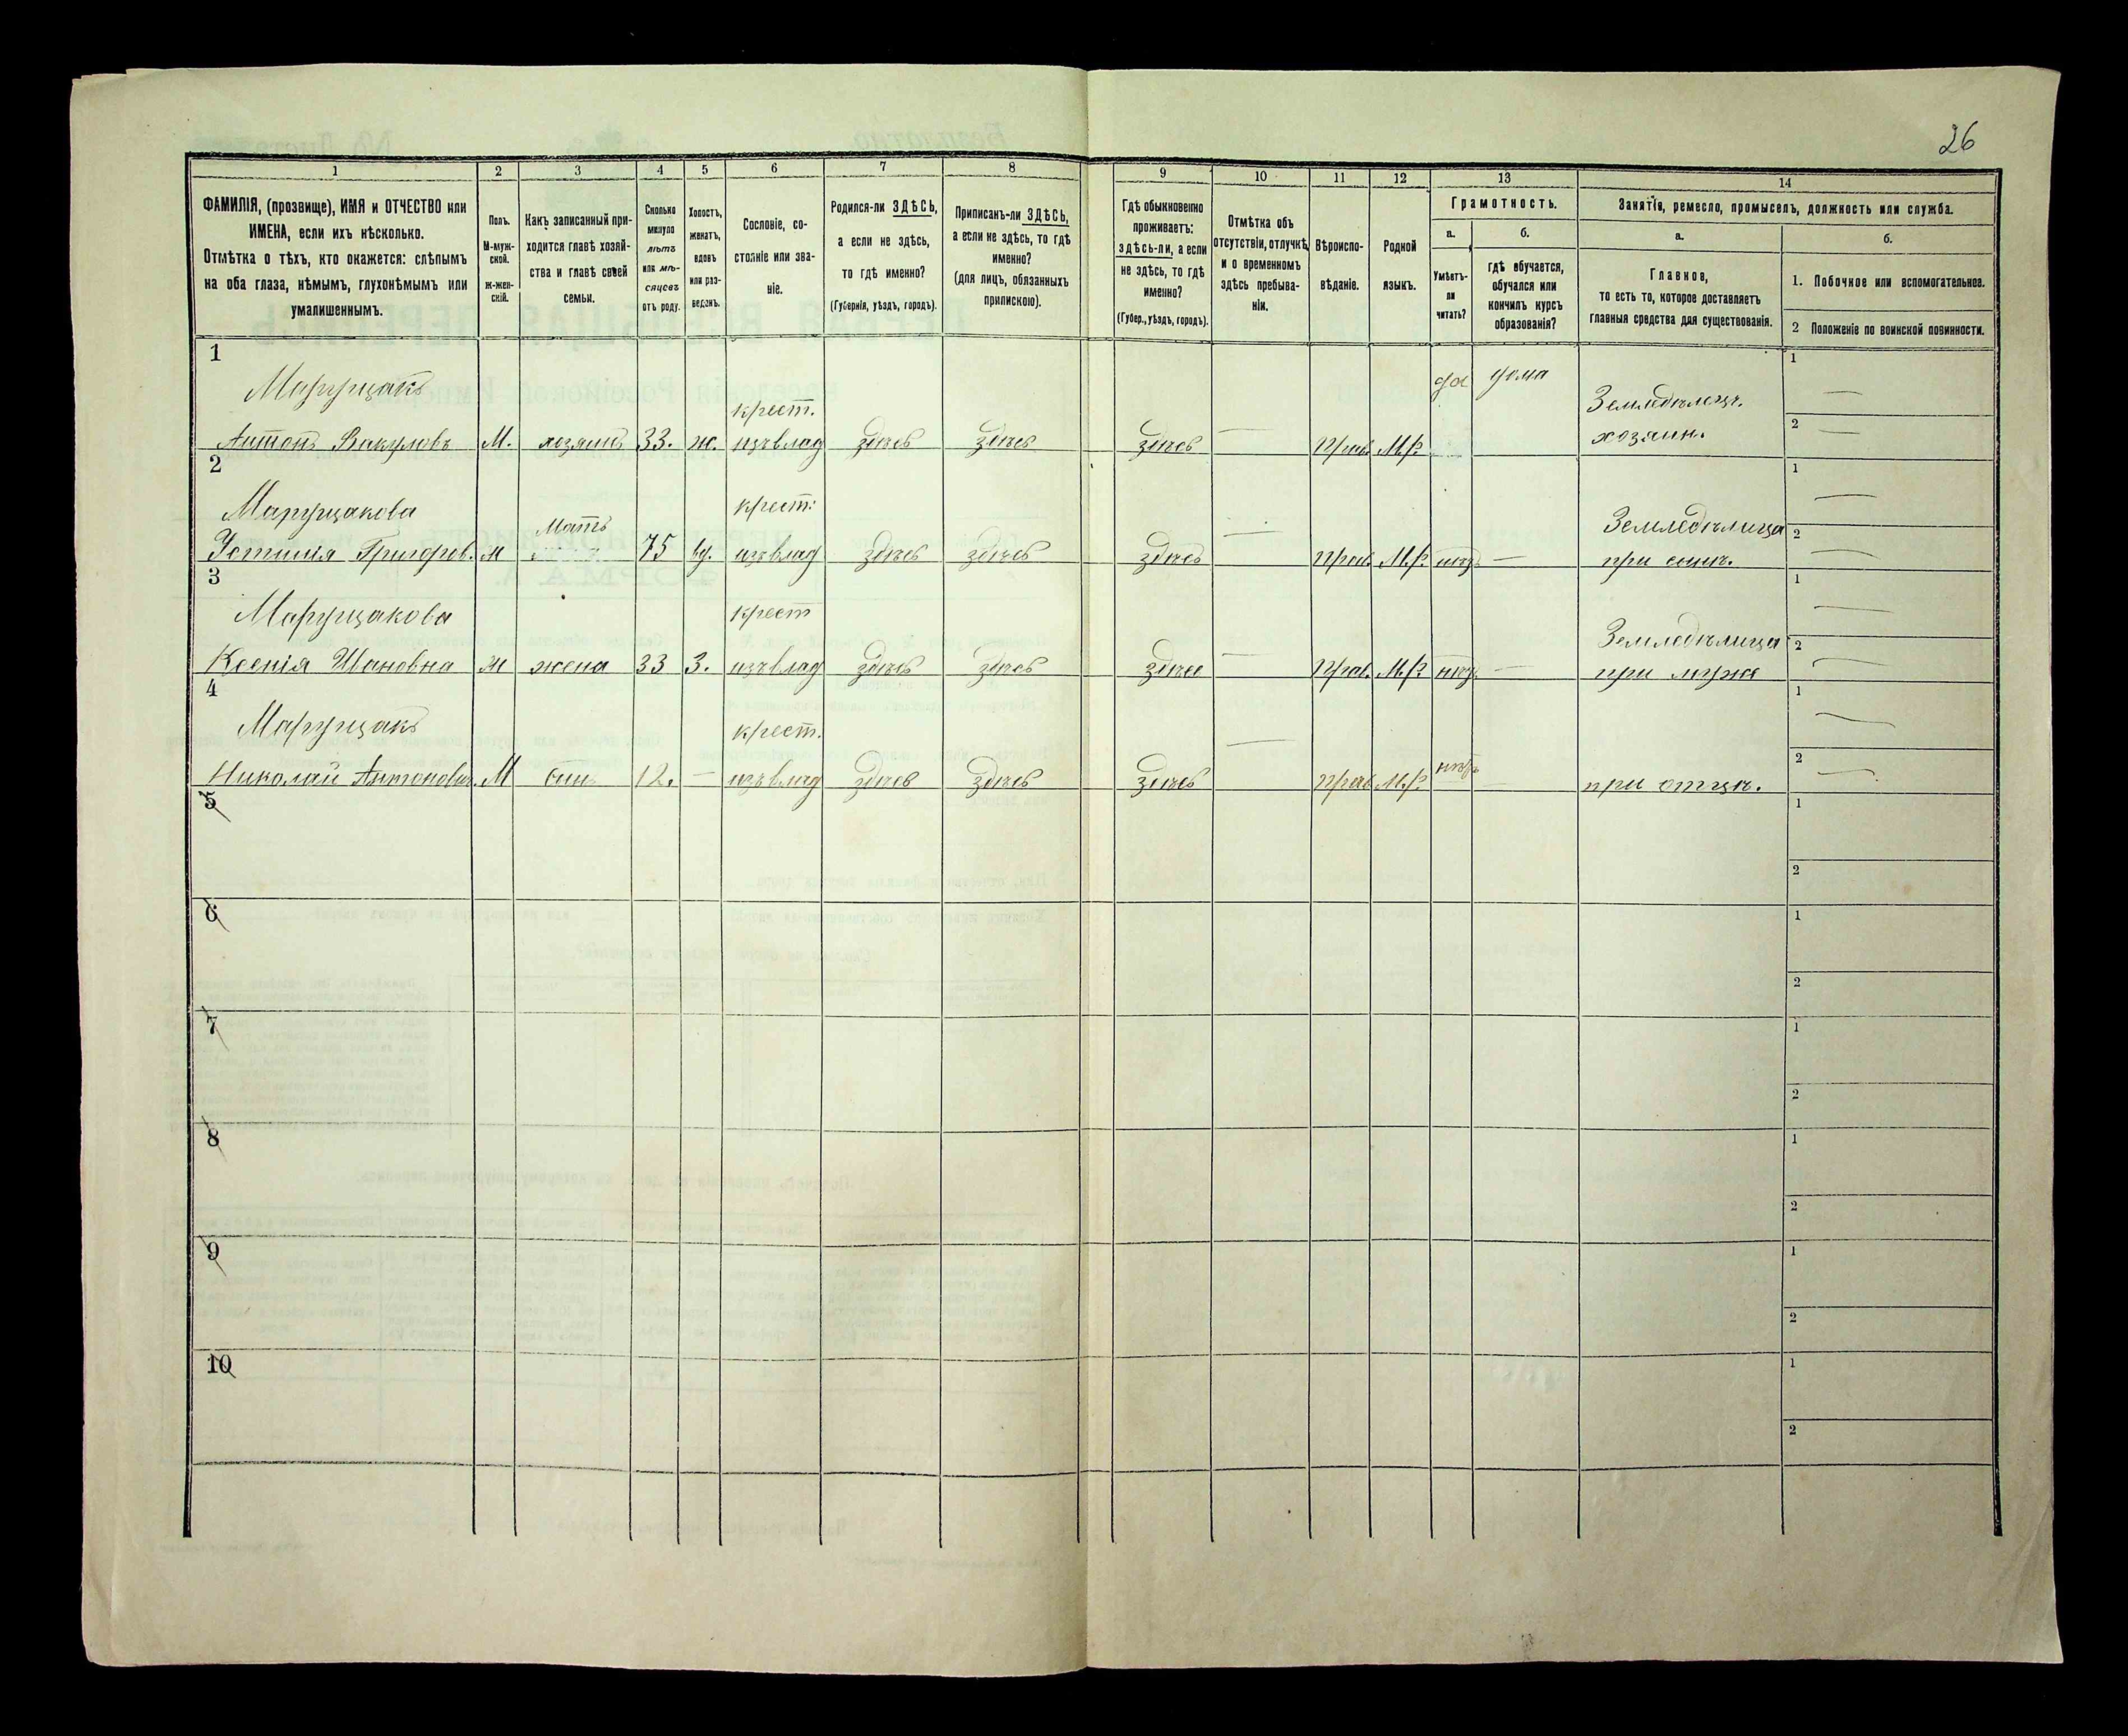 26
1 2 3 4 5 6 7 8 9 10 11 12 13 14
ФАМИЛІЯ, (прозвище), ИМЯ и ОТЧЕСТВО или
ИМЕНА, если ихъ нѣсколько.
Отмѣтка о тѣхъ, кто окажется: слѣпымъ
на оба глаза, нѣмымъ, глухонѣмымъ или
умалишеннымъ.
Полъ.
М-муж-
ской.
Ж-жен-
скій.
Какъ записанный при-
ходится главѣ хозяй-
ства и главѣ своей
семьи.
Сколько
минуло
лѣтъ
или мѣ-
сяцевъ
отъ роду.
Холостъ,
женатъ,
вдовъ
или раз-
веденъ.
Сословіе, со-
стояніе или зва-
ніе.
Родился-ли ЗДѢСЬ,
а если не здѣсь,
то гдѣ именно?
(Губернія, уѣздъ, городъ).
Приписанъ-ли ЗДѢСЬ,
а если не здѣсь, то гдѣ
именно?
(для лицъ, обязанныхъ
припискою).
Гдѣ обыкновенно
проживаетъ:
здѣсь-ли, а если
не здѣсь, то гдѣ
именно?
(Губер., уѣздъ, городъ).
Отмѣтка объ
отсутствіи, отлучкѣ
и о временномъ
здѣсь пребыва-
ніи.
Вѣроиспо-
вѣданіе.
Родной
языкъ.
Грамотность.
а.
Умѣетъ-
ли
читать?
б.
гдѣ обучается,
обучался или
кончилъ курсъ
образованія?
Занятіе, ремесло, промыселъ, должность или служба.
а.
Главное,
то есть то, которое доставляетъ
главныя средства для существованія.
б.
1. Побочное или вспомогательное.
2 Положеніе по воинской повинности.
1 да дома 1
Марущакъ крест. Земледѣлецъ.
Антонъ Вакуловъ М. хозяинъ 33. ж. изъ влад здѣсь здѣсь здѣсь — Прав. М.р. хозяин. 2
2 1
Марущакова Мать крест. Земледѣлица
Устинія Григоров. ж 75 вд. изъ влад здѣсь здѣсь здѣсь — Прав. М.р. нѣтъ — при сынѣ. 2
3 1
Марущакова крест Земледѣлица
Ксенія Ивановна ж жена 33 з. изъ влад здѣсь здѣсь здѣсь — Прав. М.р. нѣтъ — при мужѣ 2
4 1
Марущакъ крест.
Николай Антонович. М сынъ 12. — изъ влад здѣсь здѣсь здѣсь — Прав. М.р. нѣтъ — при отцѣ. 2
5 1
2
6 1
2
7 1
2
8 1
2
9 1
2
10 1
2